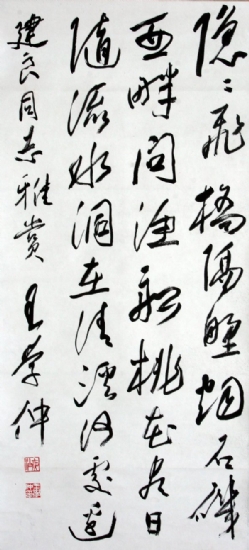 隐〻飛橋隔野烟石磯
西畔问漁船桃花尽日
隨流水洞在清溪何處邊
建同志雅赏 王学仲